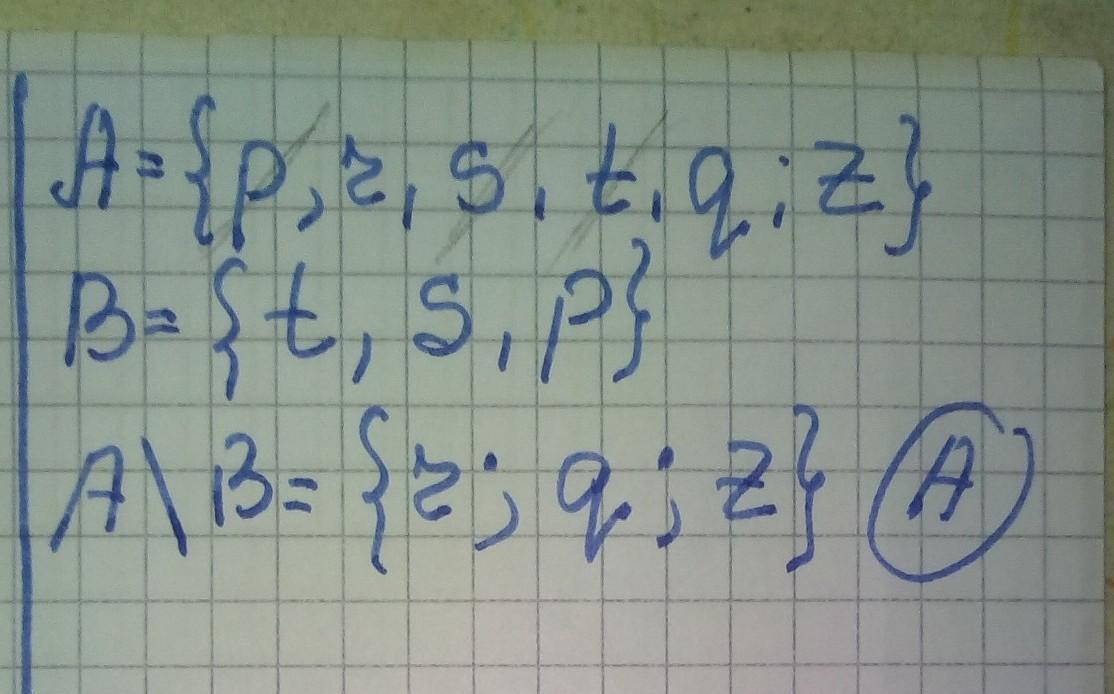 A={p,r,s,t,q;z}
B={t,s,p}
A\B={r;q;z} A